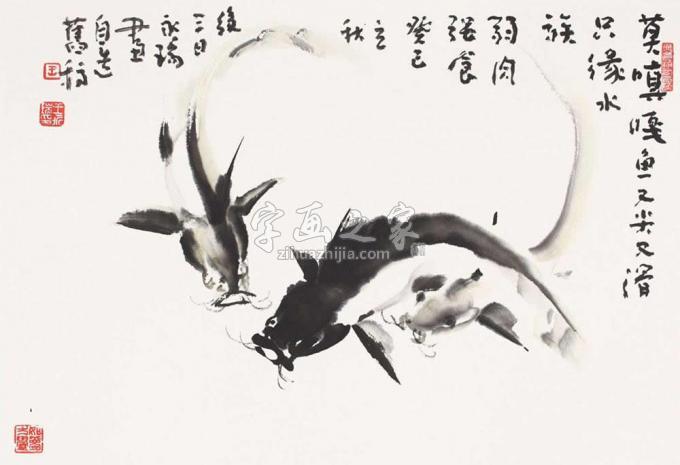 莫嗔嘎鱼又尖又滑
只缘水
族
弱肉
强食
癸巳
立
秋
後
三日
永瑞
画
自造
舊稿
字画之家
zihuazhijia.com